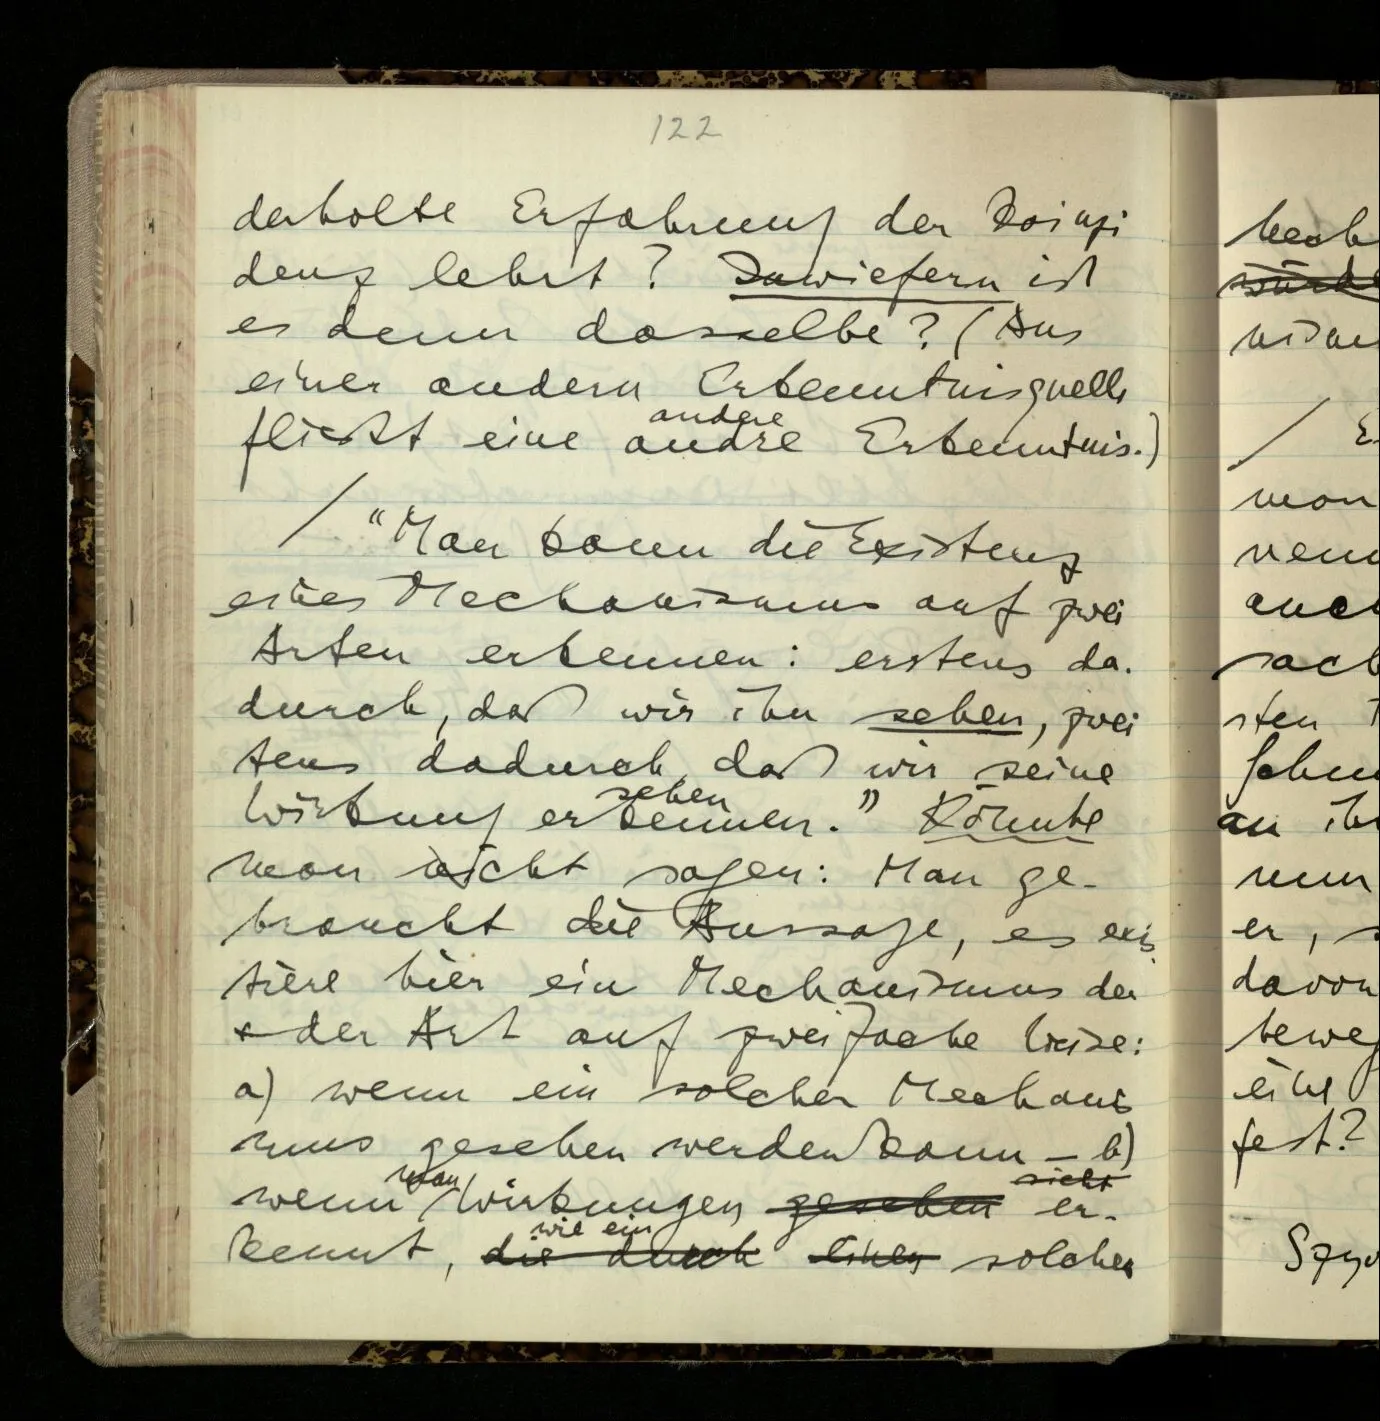 122
derholte Erfahrung der Koinzi
denz lehrt? Inwiefern ist
es denn dasselbe? (Aus
einer andern Erkenntnisquelle
andere
fließt eine andre Erkenntnis.)
/ "Man kann die Existenz
eines Mechanismus auf zwei
Arten erkennen: erstens da-
durch, daß wir ihn sehen, zwei
tens dadurch, daß wir seine
sehen
Wirkung erkennen." Könnte
man nicht sagen: Man ge-
braucht die Aussage, es exis
tiere hier ein Mechanismus der
der Art auf zweifache Weise:
a) wenn ein solcher Mechanis
mus gesehen werden kann – b)
man sieht
wenn Wirkungen gesehen er-
wie ein
kennt, die durch einen solcher
/ E
man
auch
sach
sten
an ihr
nun
er, s
davon
beweg
eine
fest?